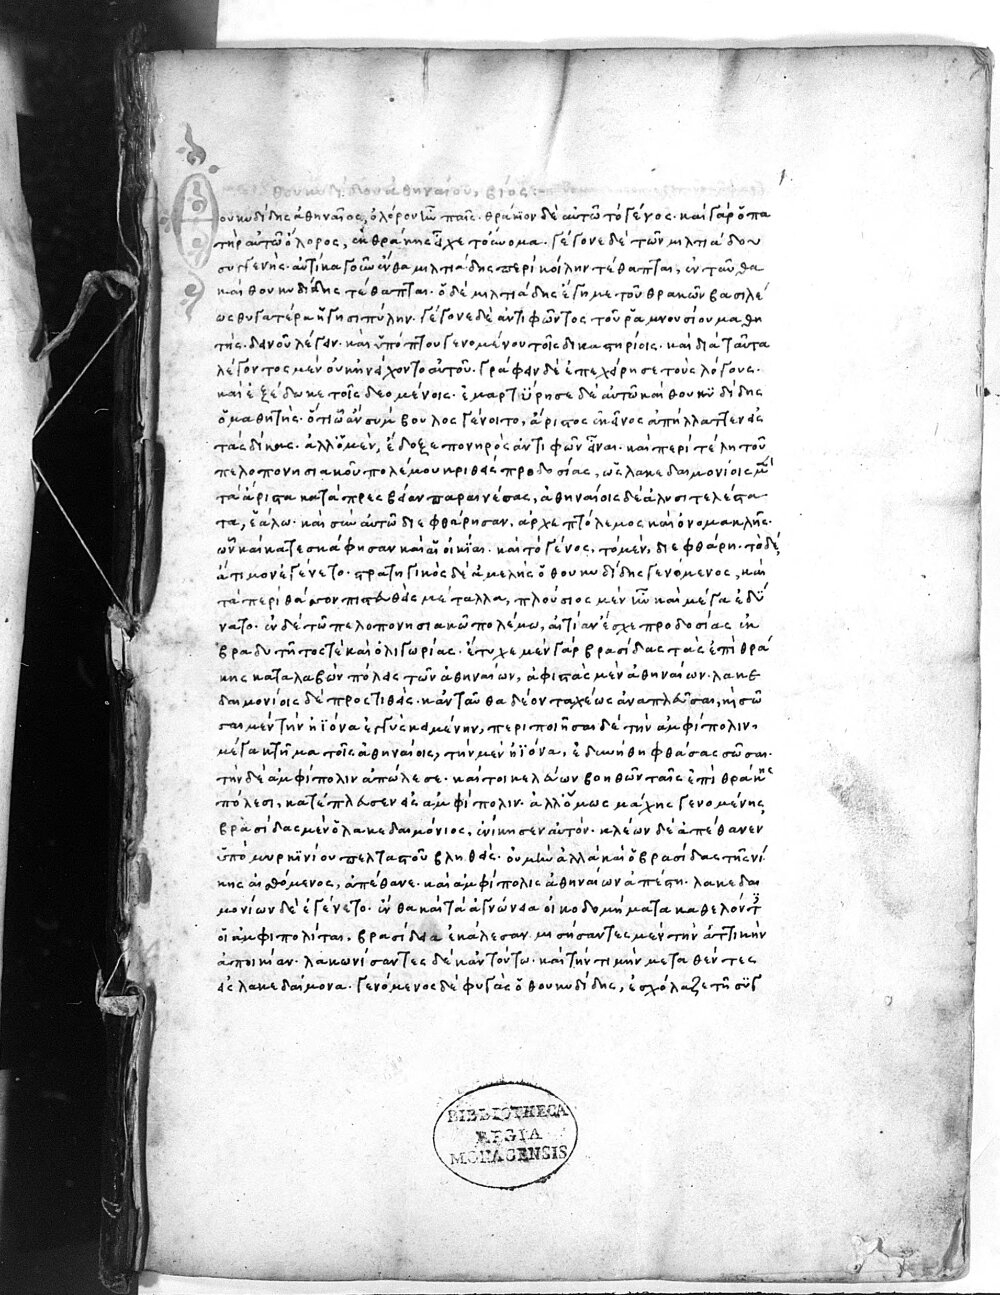 θουκυδίδου ἀθηναίου, βίος:
1.
Θουκυδίδης ἀθηναῖος, ὀλόρου ἦν παῖς· θράκιον δὲ αὐτῶ τὸ γένος· καὶ γὰρ ὁ πα
τὴρ αὐτῶ ὄλορος, ἐκ θράκης εἶχε τὸ ὄνομα· γέγονε δὲ τῶν μιλτιάδου
συγγενής· αὐτίκα γοῦν ἔνθα μιλτιάδης περὶ κοίλην τέθαπται, ἐνταῦθα
καὶ θουκυδίδης τέθαπται· ὁ δὲ μιλτιάδης ἔγημε τοῦ θρακῶν βασιλέ
ως θυγατέρα ἡγησιπύλην· γέγονε δὲ ἀντιφῶντος τοῦ ῥαμνουσίου μαθη
τής· δεινοῦ λέγειν· καὶ ὑπόπτου γενομένου τοῖς δικαστηρίοις· καὶ διὰ ταῦτα
λέγοντος μὲν οὐκ ἠνείχοντο αὐτοῦ· γράφειν δὲ ἐπεχείρησε τοὺς λόγους·
καὶ ἐξέδωκε τοῖς δεομένοις· ἐμαρτύρησε δὲ αὐτῶ καὶ θουκυδίδης
ὁ μαθητής· ὅτι ὧ ἂν σύμβουλος γένοιτο, ἄριστος ἐκεῖνος ἀπήλλαττεν εἰς
τὰς δίκας· ἀλλ' ὁ μὲν, ἔδοξε πονηρὸς ἀντιφῶν εἶναι· καὶ περὶ τέλη τοῦ
πελοπονησιακοῦ πολέμου κριθεὶς προδοσίας, ὡς λακεδαιμονίοις μὲν
τὰ ἄριστα κατὰ πρεσβείαν παραινέσας, ἀθηναίοις δὲ ἀλυσιτελέστα
τα, ἑάλω· καὶ σὺν αὐτῶ διεφθάρησαν, ἀρχεπτόλεμος καὶ ὀνομακλῆς·
ὧν καὶ κατεσκάφησαν καὶ αἱ οἰκίαι· καὶ τὸ γένος, τὸ μὲν, διεφθάρη· τὸ δὲ,
ἄτιμον ἐγένετο· στρατηγικὸς δὲ ἀμελὴς ὁ θουκυδίδης γενόμενος, καὶ
τὰ περὶ θάσον πιστευθεὶς μέταλλα, πλούσιος μὲν ἦν καὶ μέγα ἐδύ
νατο· ἐν δὲ τῶ πελοπονησιακῶ πολέμω, αἰτίαν ἔσχε προδοσίας ἐκ
βραδυτῆτός τε καὶ ὀλιγωρίας· ἔτυχε μὲν γὰρ βρασίδας τὰς ἐπὶ θρά
κης καταλαβὼν πόλεις τῶν ἀθηναίων, ἀφιστὰς μὲν ἀθηναίων· λακε
δαιμονίοις δὲ προστιθείς· κἀνταῦθα δέον ταχέως ἀναπλεῦσαι, κὴ σῶ
σαι μὲν τὴν ἠϊόνα ἐγγὺς κειμένην, περιποιῆσαι δὲ τὴν ἀμφίπολιν,
μέγα κτῆμα τοῖς ἀθηναίοις, τὴν μὲν ἠϊόνα, ἐδυνήθη φθάσας σῶσαι·
τὴν δὲ ἀμφίπολιν ἀπώλεσε· καίτοι κλέων βοηθῶν ταῖς ἐπὶ θράκης
πόλεσι, κατέπλευσεν εἰς ἀμφίπολιν· ἀλλ' ὅμως μάχης γενομένης
βρασίδας μὲν ὁ λακεδαιμόνιος, ἐνίκησεν αὐτόν· κλέων δὲ ἀπέθανεν
ὑπὸ μυρκινίου πελταστοῦ βληθείς· οὐ μὴν ἀλλὰ καὶ ὁ βρασίδας τῆς νί
κης αἰσθόμενος, ἀπέθανε· καὶ ἀμφίπολις ἀθηναίων ἀπέστη· λακεδαι
μονίων δὲ ἐγένετο· ἔνθα καὶ τὰ ἁγνώνεια οἰκοδομήματα καθελόντες
οἱ ἀμφιπολῖται, βρασίδεια ἐκάλεσαν· μισήσαντες μὲν τὴν ἀττικὴν
ἀποικίαν· λακωνίσαντες δὲ κἀν τούτω· καὶ τὴν τιμὴν μεταθέντες
εἰς λακεδαίμονα· γενόμενος δὲ φυγὰς ὁ θουκυδίδης, ἐσχόλαζε τῆ συγ
BIBLIOTHECA
REGIA
MONACENSIS